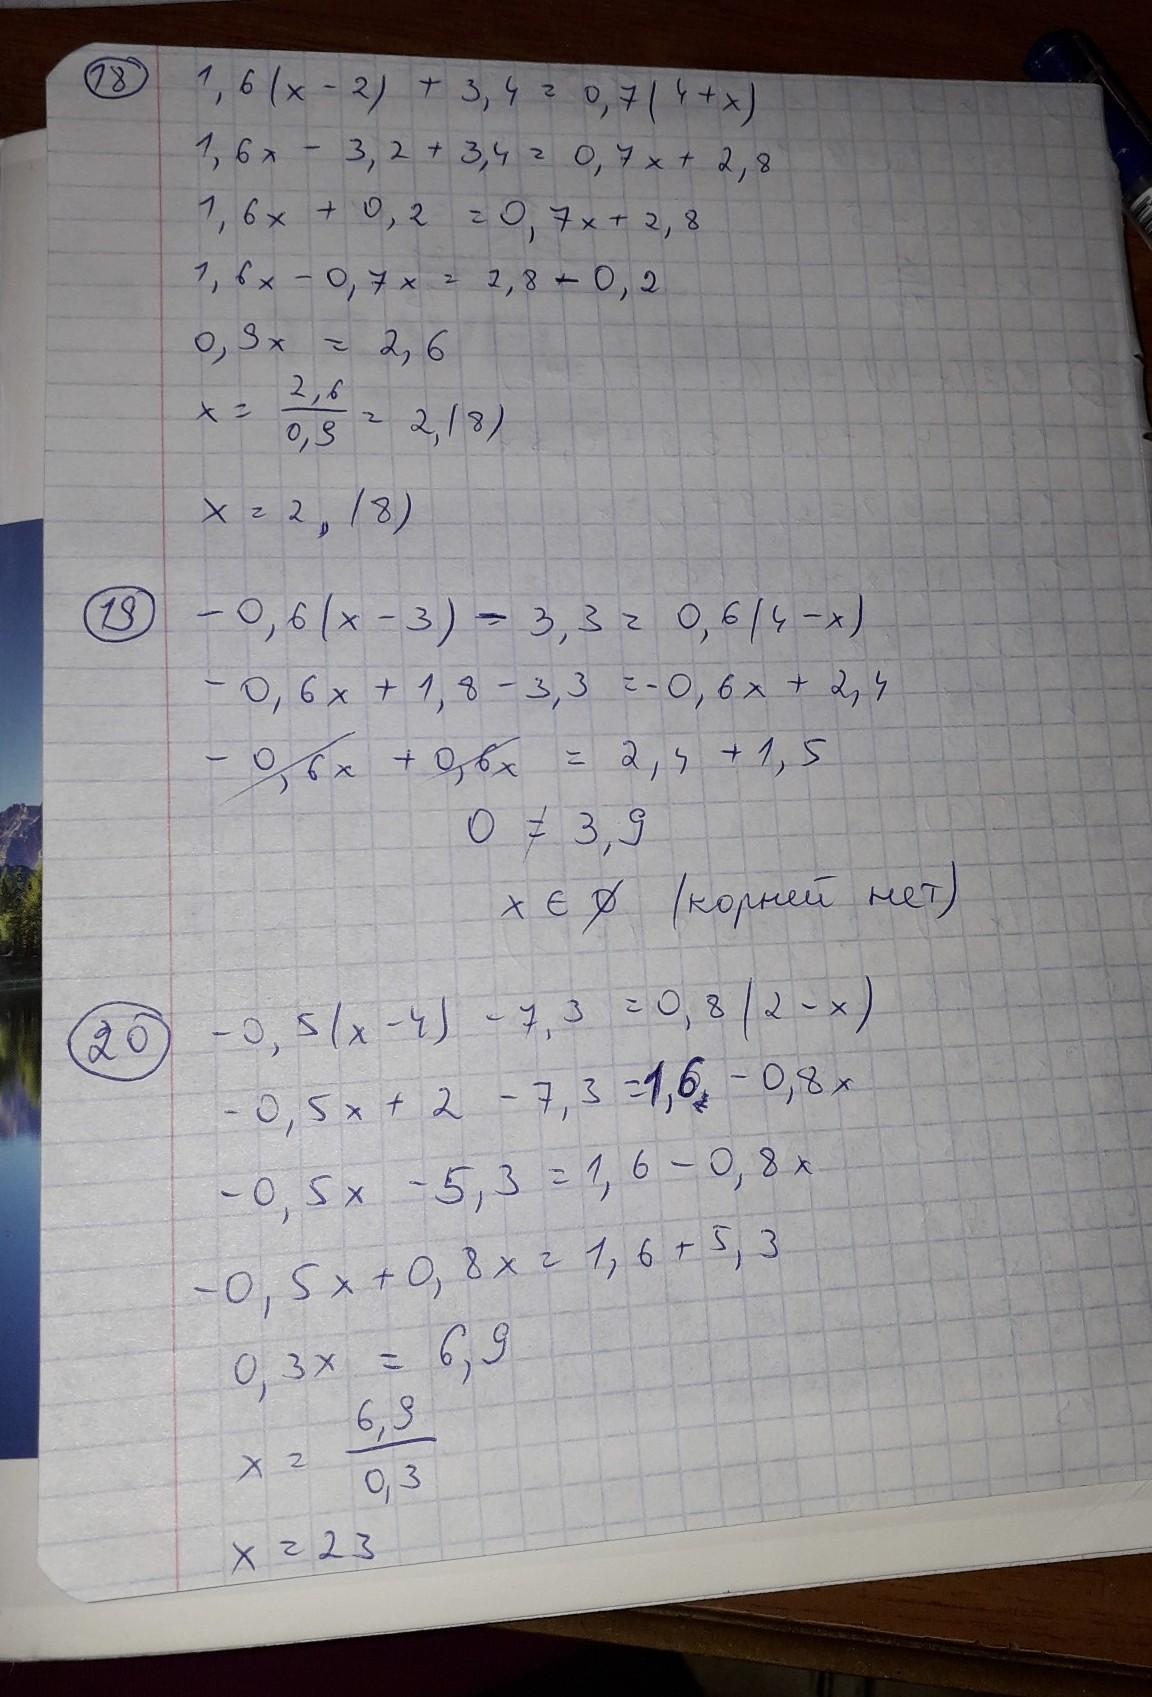 18 1,6(x - 2) + 3,4 = 0,7(4 + x)
1,6x - 3,2 + 3,4 = 0,7x + 2,8
1,6x + 0,2 = 0,7x + 2,8
1,6x - 0,7x = 2,8 - 0,2
0,9x = 2,6
x = 2,6/0,9 = 2,(8)
x = 2,(8)
19 -0,6(x - 3) - 3,3 = 0,6(4 - x)
-0,6x + 1,8 - 3,3 = -0,6x + 2,4
-0,6x + 0,6x = 2,4 + 1,5
0 ≠ 3,9
x ∈ ∅ (корней нет)
20 -0,5(x - 4) - 7,3 = 0,8(2 - x)
-0,5x + 2 - 7,3 = 1,6 - 0,8x
-0,5x - 5,3 = 1,6 - 0,8x
-0,5x + 0,8x = 1,6 + 5,3
0,3x = 6,9
x = 6,9/0,3
x = 23